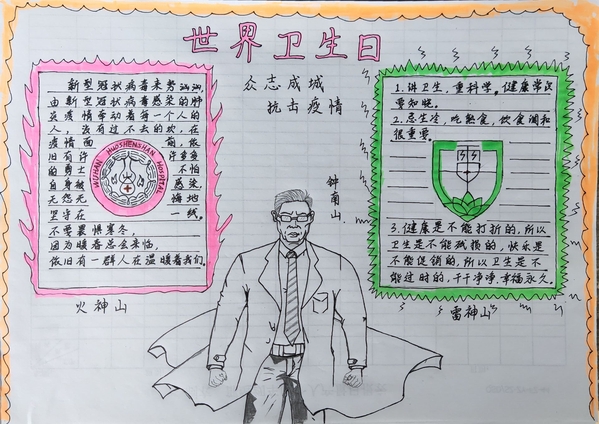 世界卫生日
众志成城
抗击疫情
新型冠状病毒来势汹汹,
由新型冠状病毒感染的肺
炎疫情牵动着每一个人的
人，没有过不去的坎,在
疫情面前,依
旧有许许多多
的勇士不怕
自身被感染,
无怨无悔地
坚守在一线。
不要畏惧寒冬,
因为暖春总会来临,
依旧有一群人在温暖着我们。
WUHAN HUOSHENSHAN HOSPITAL
火神山
钟南山
1.讲卫生,重科学。健康常识
要知晓。
2.忌生冷,吃熟食,饮食调和
很重要。
3.健康是不能打折的,所以
卫生是不能残损的,快乐是
不能促销的,所以卫生是不
能过时的,干干净净,幸福永久。
雷神山